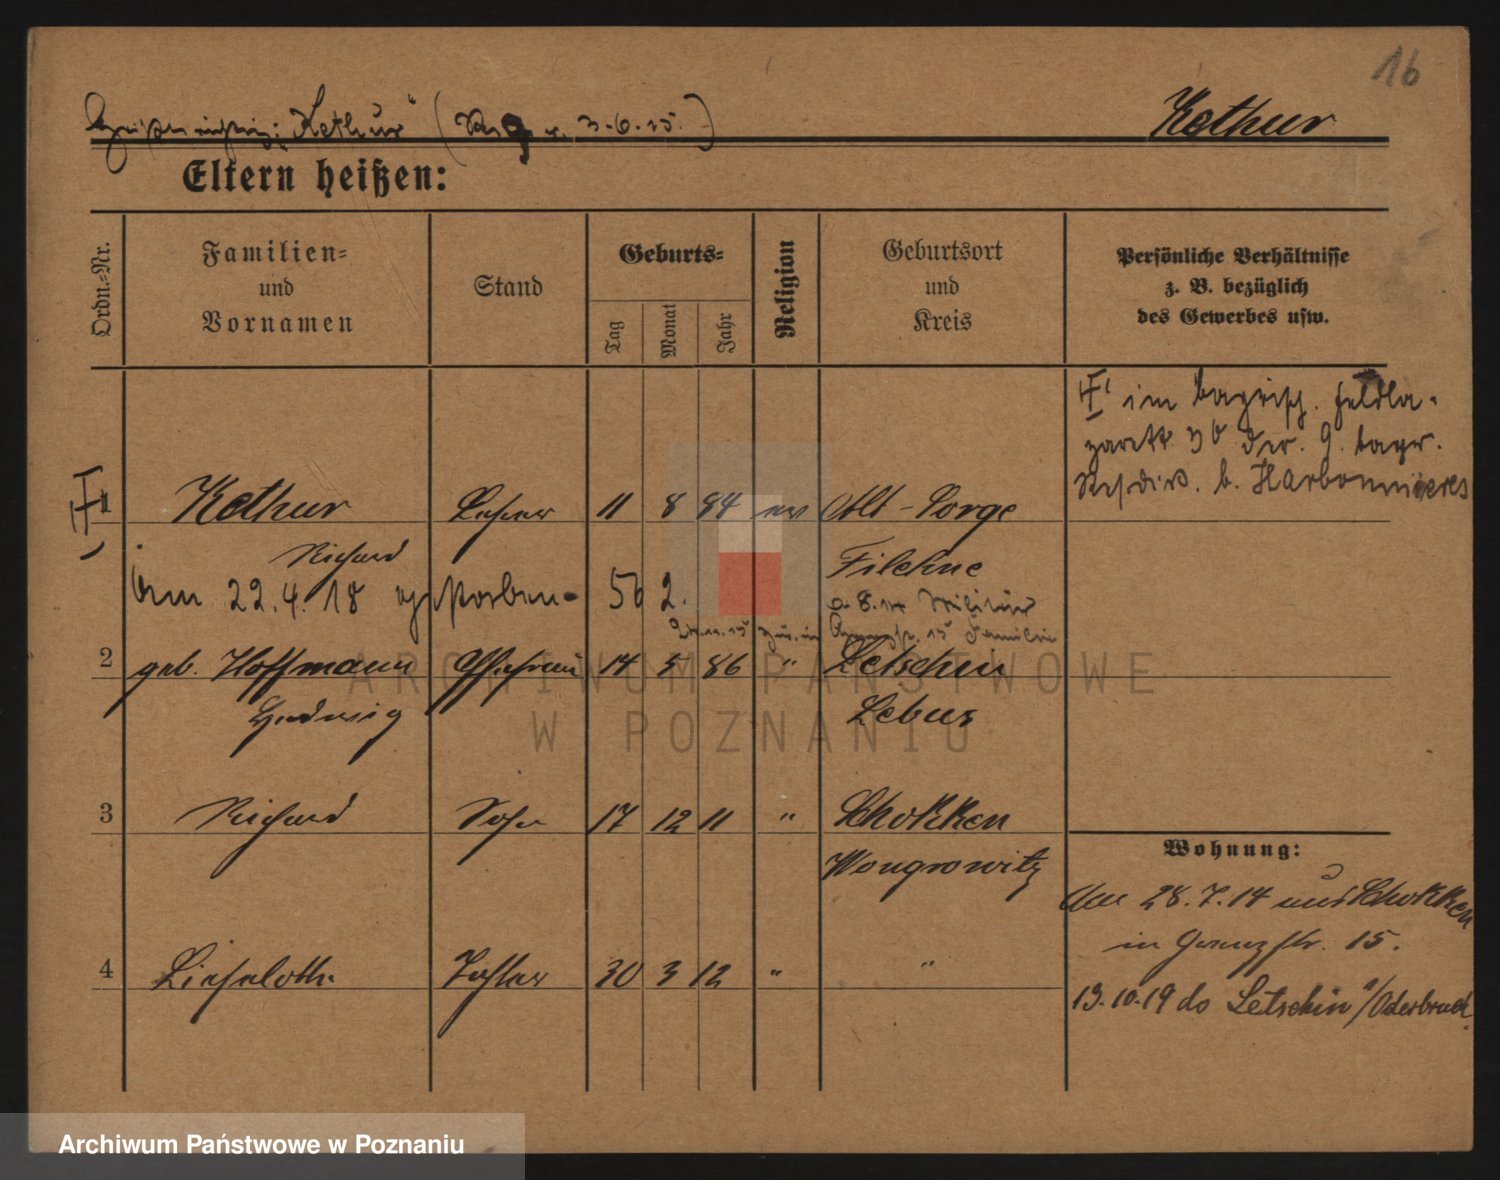 16
"Kethur" ( 3.6.15.)
Kethur
Eltern heißen:
Ordn.-Nr.
Familien-
und
Vornamen
Stand
Geburts-
Tag
Monat
Jahr
Religion
Geburtsort
und
Kreis
Persönliche Verhältnisse
z. B. bezüglich
des Gewerbes usw.
im bayrisch. Feldla-
zarett der 9. bayr.
b. Harbonnières
1 Kethur Lehrer 11 8 84 ev Alt-Sorge
Richard Filehne
am 22.4.18 verstorben- 56 2. Militär
Familie
2 geb. Hoffmann Ehefrau 14 5 86 " Letschin
Hedwig Lebus
3 Richard Sohn 17 12 11 " Schokken
Wongrowitz
4 Lieselotte Tochter 30 3 12 " "
Wohnung:
Am 28.7.14 aus Schokken
in Grenzstr. 15.
13.10.19 do Letschin a/Oderbruch
ARCHIWUM PAŃSTWOWE
W POZNANIU
Archiwum Państwowe w Poznaniu